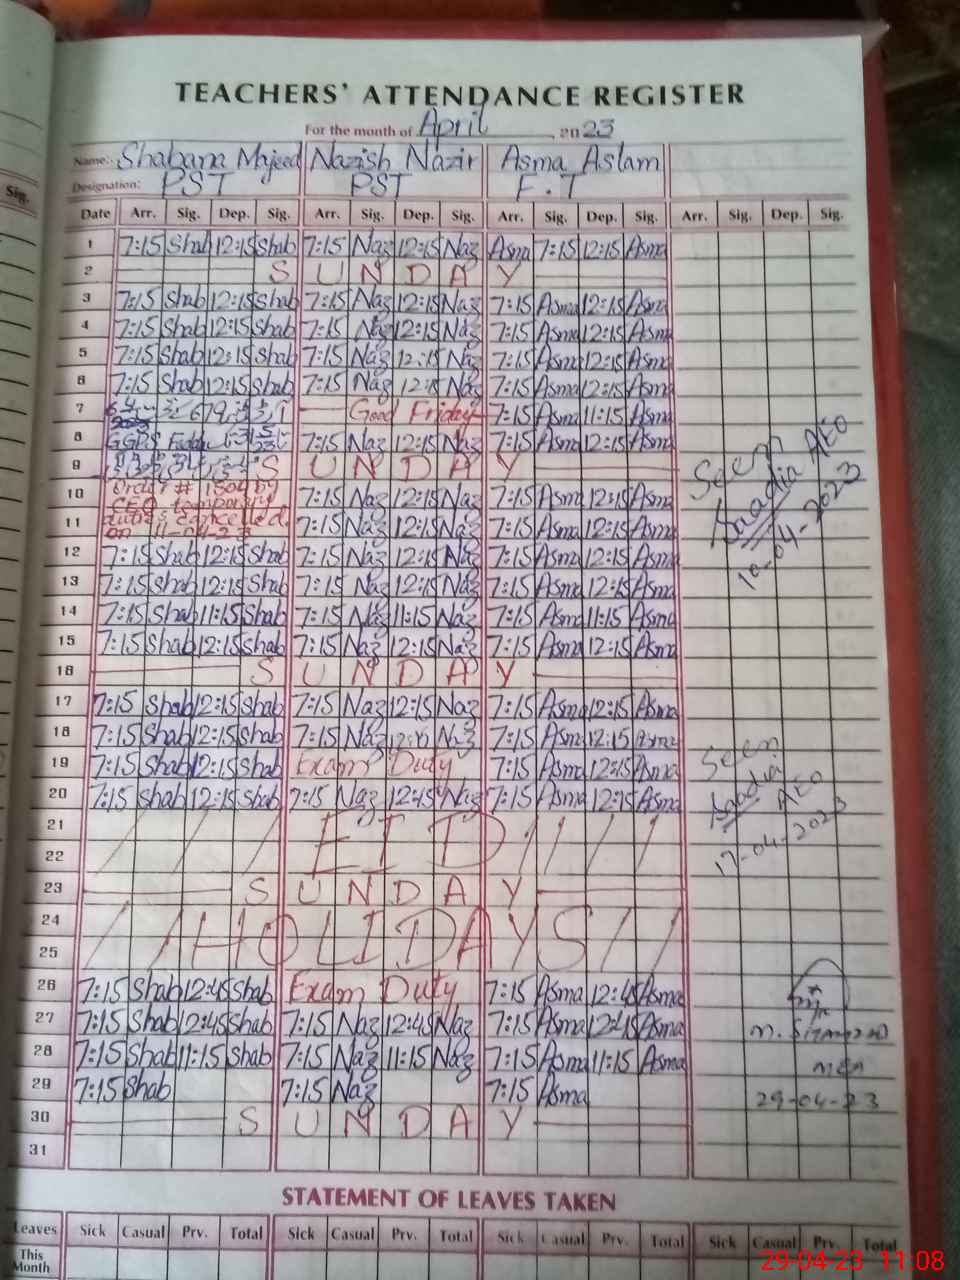 TEACHERS' ATTENDANCE REGISTER
For the month of April, 2023
Name: Shabana Majeed Nazish Nazir Asma Aslam
Designation: PST PST F.T
Sig.
Date Arr. Sig. Dep. Sig. Arr. Sig. Dep. Sig. Arr. Sig. Dep. Sig. Arr. Sig. Dep. Sig.
1 7:15 Shab 12:15 Shab 7:15 Naz 12:15 Naz Asma 7:15 12:15 Asma
2 SUNDAY
3 7:15 Shab 12:15 Shab 7:15 Naz 12:15 Naz 7:15 Asma 12:15 Asma
4 7:15 Shab 12:15 Shab 7:15 Naz 12:15 Naz 7:15 Asma 12:15 Asma
5 7:15 Shab 12:15 Shab 7:15 Naz 12:15 Naz 7:15 Asma 12:15 Asma
6 7:15 Shab 12:15 Shab 7:15 Naz 12:15 Naz 7:15 Asma 12:15 Asma
7 Good Friday 7:15 Asma 11:15 Asma
8 GGPS 7:15 Naz 12:15 Naz 7:15 Asma 12:15 Asma
9 SUNDAY
Seen
Saadia AEO
10-04-2023
10 Order # by 7:15 Naz 12:15 Naz 7:15 Asma 12:15 Asma
CEO temporary
11 duties cancelled 7:15 Naz 12:15 Naz 7:15 Asma 12:15 Asma
on 11-04-23
12 7:15 Shab 12:15 Shab 7:15 Naz 12:15 Naz 7:15 Asma 12:15 Asma
13 7:15 Shab 12:15 Shab 7:15 Naz 12:15 Naz 7:15 Asma 12:15 Asma
14 7:15 Shab 11:15 Shab 7:15 Naz 11:15 Naz 7:15 Asma 11:15 Asma
15 7:15 Shab 12:15 Shab 7:15 Naz 12:15 Naz 7:15 Asma 12:15 Asma
16 SUNDAY
17 7:15 Shab 12:15 Shab 7:15 Naz 12:15 Naz 7:15 Asma 12:15 Asma
18 7:15 Shab 12:15 Shab 7:15 Naz Naz 7:15 Asma 12:15 Asma
19 7:15 Shab 12:15 Shab Exam Duty 7:15 Asma 12:15 Asma
20 7:15 Shab 12:15 Shab 7:15 Naz 12:15 Naz 7:15 Asma 12:15 Asma
Seen
Saadia AEO
17-04-2023
21
EID
22
23 SUNDAY
24
HOLIDAYS
25
26 7:15 Shab 12:45 Shab Exam Duty 7:15 Asma 12:45 Asma
27 7:15 Shab 12:45 Shab 7:15 Naz 12:45 Naz 7:15 Asma 12:45 Asma
28 7:15 Shab 11:15 Shab 7:15 Naz 11:15 Naz 7:15 Asma 11:15 Asma
29 7:15 Shab 7:15 Naz 7:15 Asma
29-04-23
30 SUNDAY
31
STATEMENT OF LEAVES TAKEN
Leaves Sick Casual Prv. Total Sick Casual Prv. Total Sick Casual Prv. Total Sick Casual Prv. Total
This
Month
29-04-23 11:08